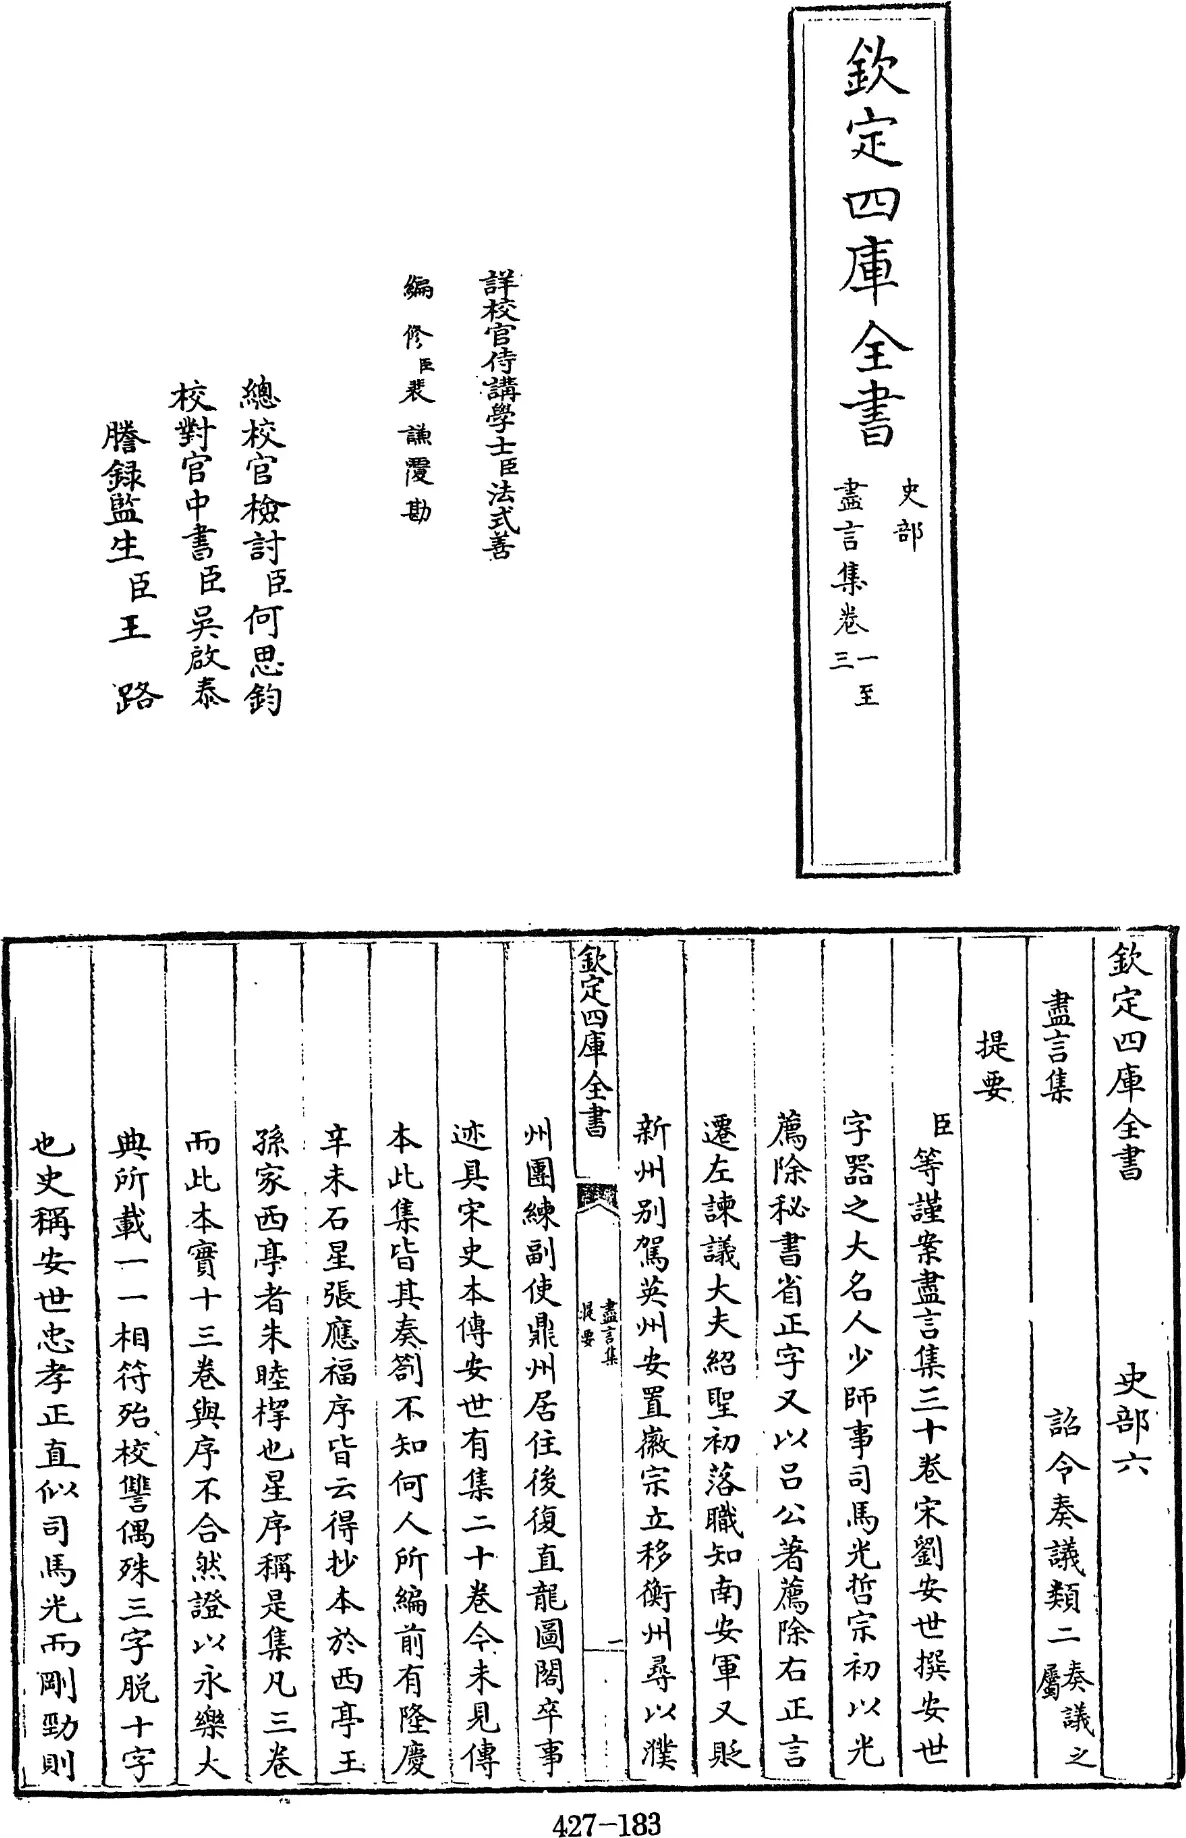 欽定四庫全書
史部
盡言集卷一至三
詳校官侍講學士臣法式善
編修臣裴謙覆勘
總校官檢討臣何思鈞
校對官中書臣吳啟泰
謄録監生臣王路
欽定四庫全書 史部六
盡言集 詔令奏議類二奏議之屬
提要
臣等謹案盡言集三十卷宋劉安世撰安世
字器之大名人少師事司馬光哲宗初以光
薦除秘書省正字又以呂公著薦除右正言
遷左諫議大夫紹聖初落職知南安軍又貶
新州别駕英州安置徽宗立移衡州尋以濮
欽定四庫全書 盡言集提要 一
州團練副使鼎州居住後復直龍圖閣卒事
迹具宋史本傳安世有集二十卷今未見傳
本此集皆其奏劄不知何人所編前有隆慶
辛未石星張應福序皆云得抄本於西亭王
孫家西亭者朱睦㮮也星序稱是集凡三卷
而此本實十三卷與序不合然證以永樂大
典所載一一相符殆校讐偶殊三字脱十字
也史稱安世忠孝正直似司馬光而剛勁則
427-183